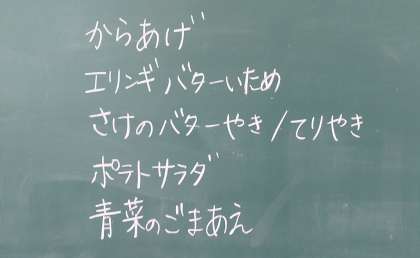 からあげ
エリンギバターいため
さけのバターやき/てりやき
ポテトサラダ
青菜のごまあえ